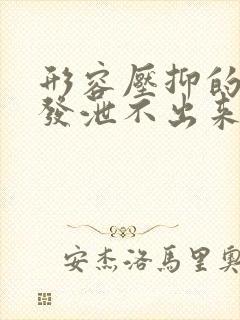 形容壓抑的
發泄不出来
安杰洛馬里奧